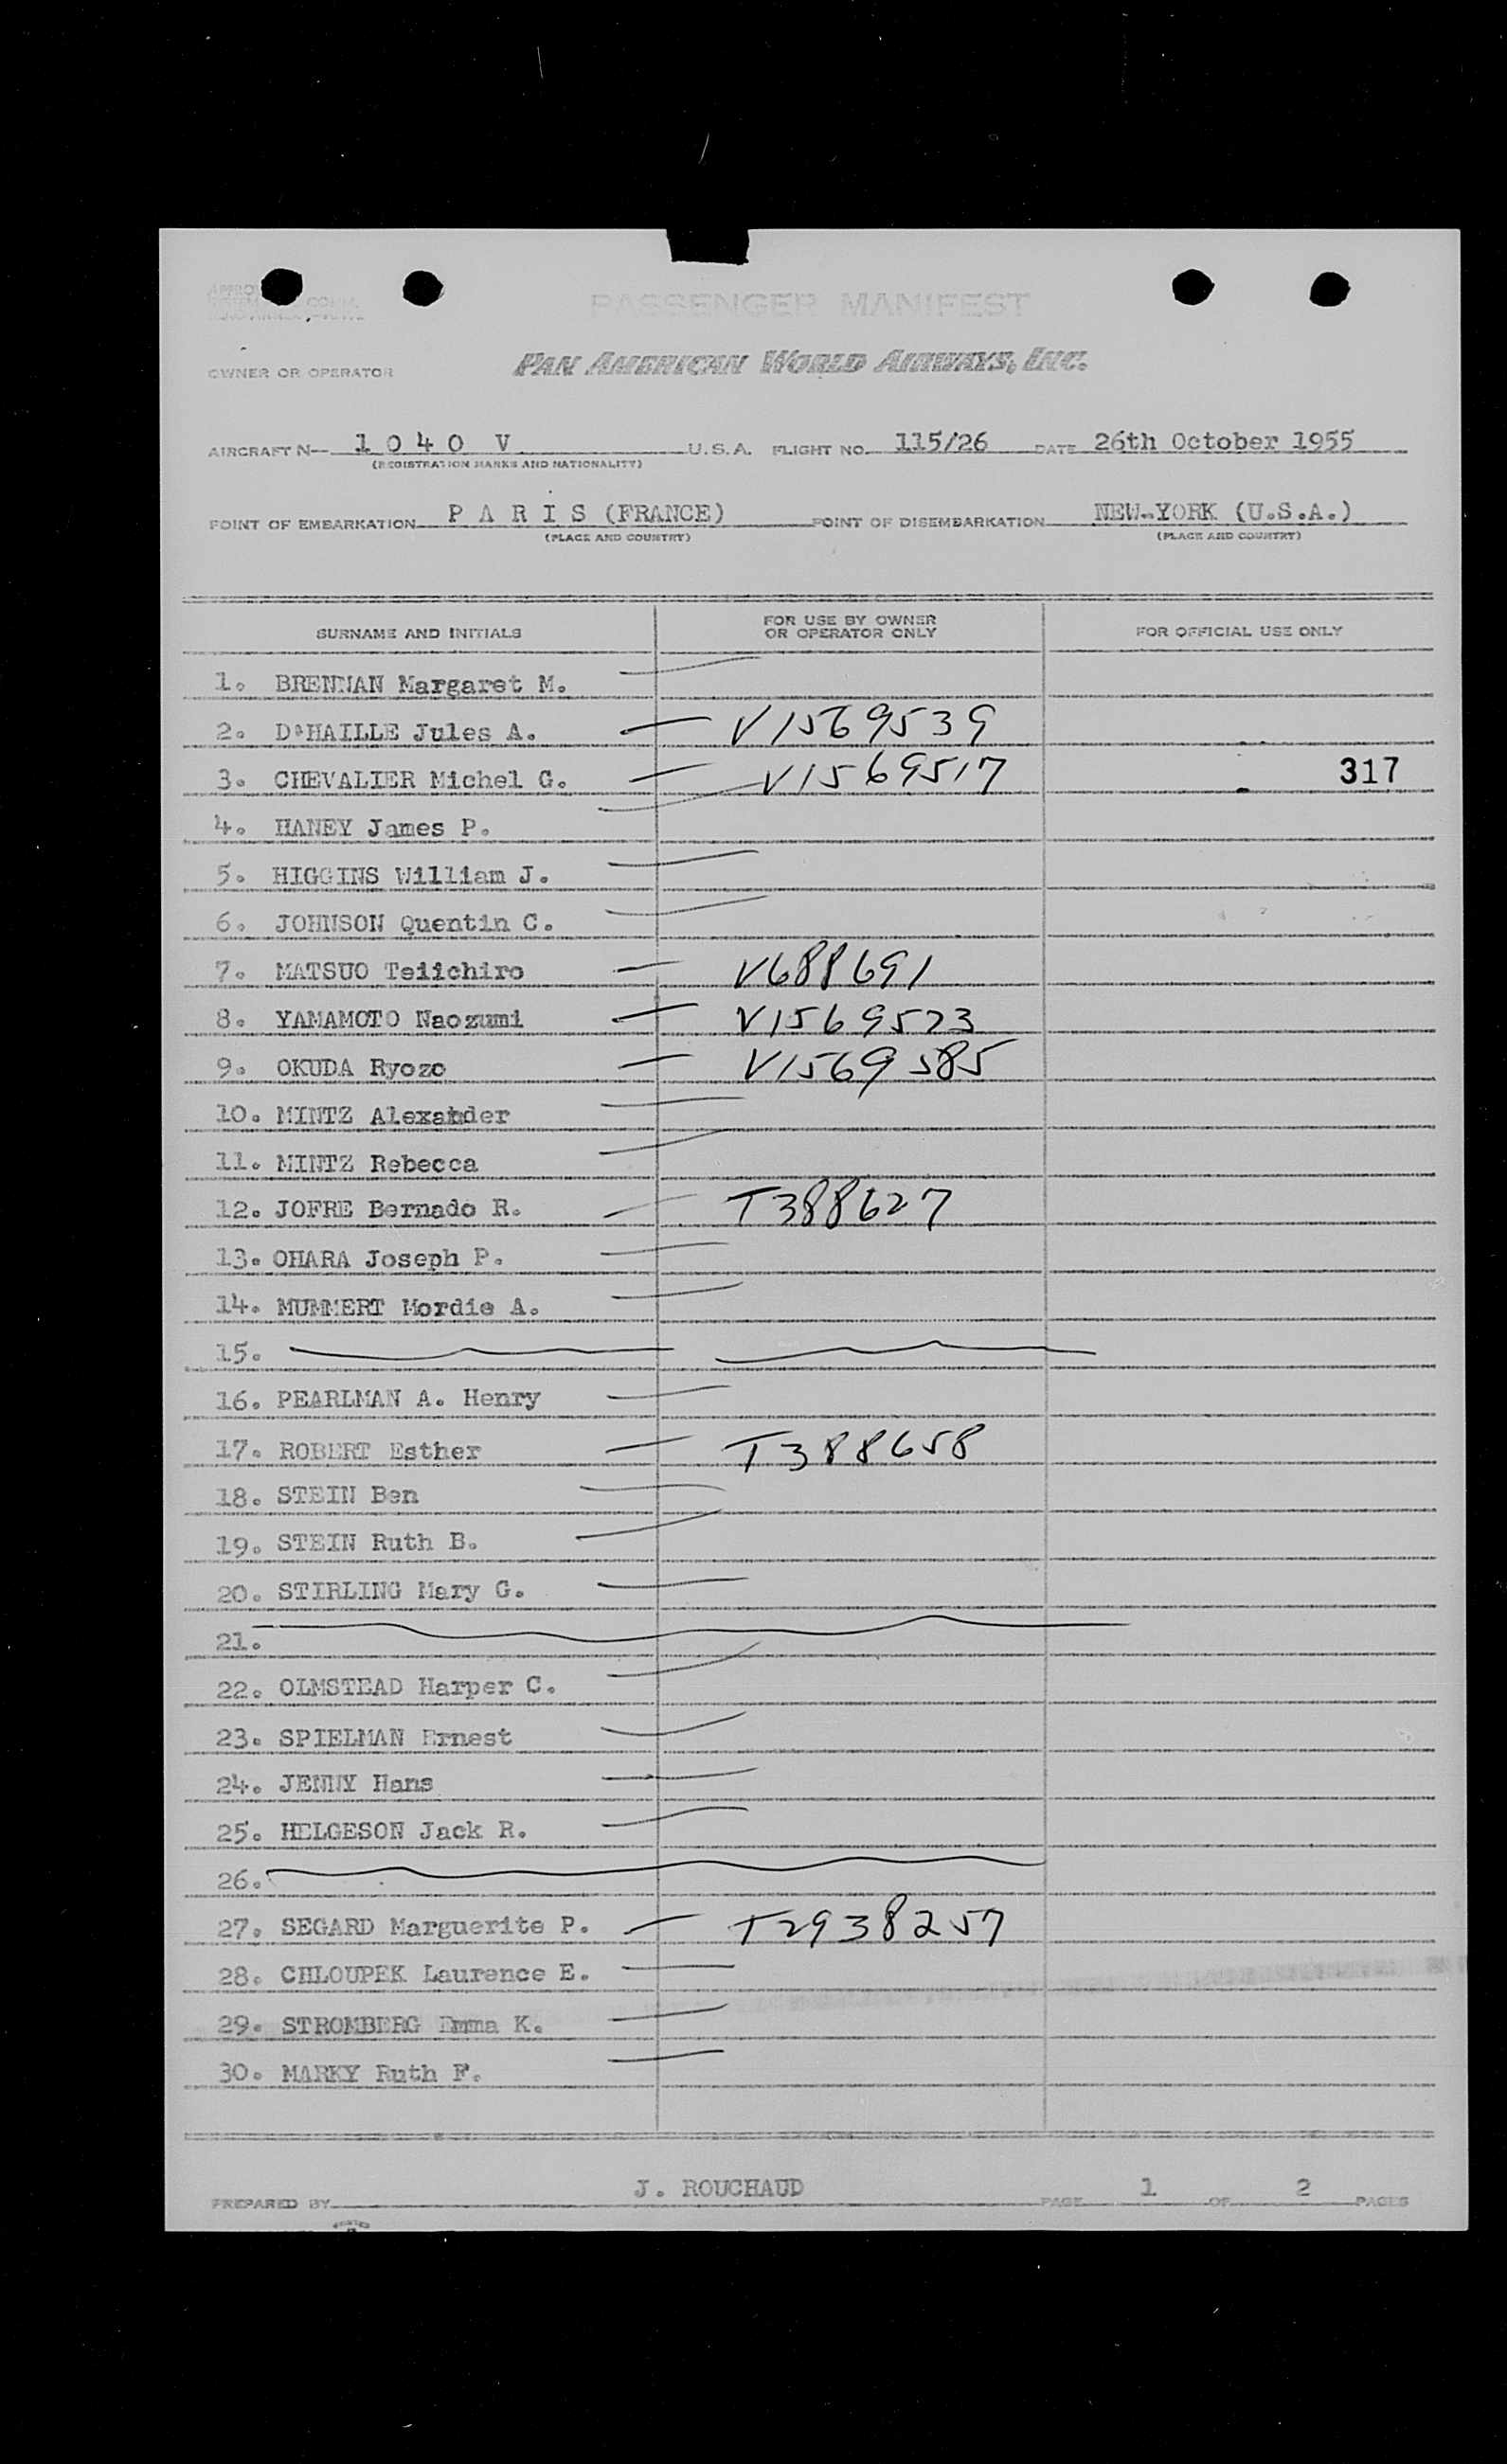 PASSENGER MANIFEST
OWNER OR OPERATOR PAN AMERICAN WORLD AIRWAYS, INC.
AIRCRAFT N- 1040 V U.S.A. FLIGHT NO. 115/26 DATE 26th October 1955
(REGISTRATION MARKS AND NATIONALITY)
POINT OF EMBARKATION P A R I S (FRANCE) POINT OF DISEMBARKATION NEW-YORK (U.S.A.)
(PLACE AND COUNTRY) (PLACE AND COUNTRY)
SURNAME AND INITIALS FOR USE BY OWNER OR OPERATOR ONLY FOR OFFICIAL USE ONLY
1. BRENNAN Margaret M.
2. D'HAILLE Jules A. V1569539
3. CHEVALIER Michel G. V1569517 317
4. HANEY James P.
5. HIGGINS William J.
6. JOHNSON Quentin C.
7. MATSUO Teiichiro V688691
8. YAMAMOTO Naozumi V1569523
9. OKUDA Ryozo V1569585
10. MINTZ Alexander
11. MINTZ Rebecca
12. JOFRE Bernado R. T388627
13. OHARA Joseph P.
14. MUMMERT Mordie A.
15.
16. PEARLMAN A. Henry
17. ROBERT Esther T388658
18. STEIN Ben
19. STEIN Ruth B.
20. STIRLING Mary G.
21.
22. OLMSTEAD Harper C.
23. SPIELMAN Ernest
24. JENNY Hans
25. HELGESON Jack R.
26.
27. SEGARD Marguerite P. T2938257
28. CHLOUPEK Laurence E.
29. STROMBERG Emma K.
30. MARKY Ruth F.
PREPARED BY J. ROUCHAUD PAGE 1 OF 2 PAGES